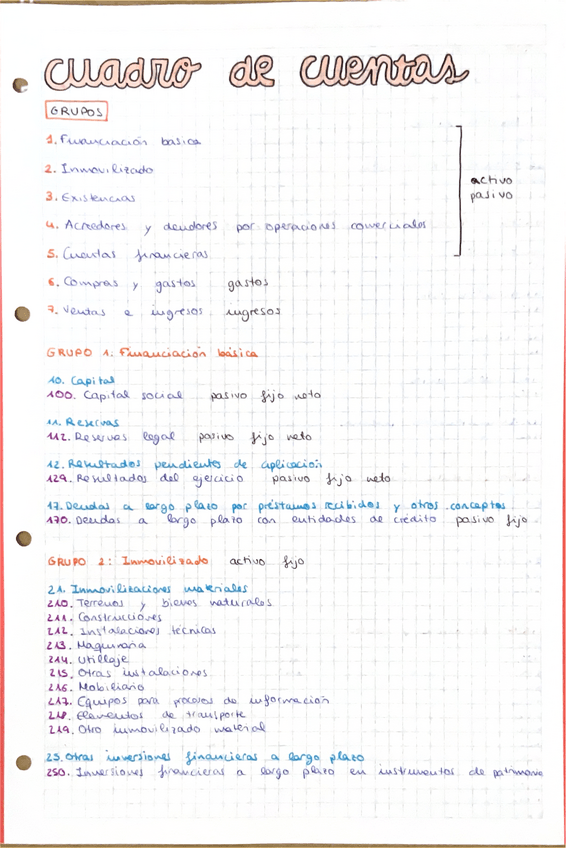 cuadro de cuentas
GRUPOS
1. Financiación básica
2. Inmovilizado
3. Existencias
activo
pasivo
4. Acreedores y deudores por operaciones comerciales
5. Cuentas financieras
6. Compras y gastos gastos
7. Ventas e ingresos ingresos
GRUPO 1: Financiación básica
10. Capital
100. Capital social pasivo fijo neto
11. Reservas
112. Reservas legal pasivo fijo neto
12. Resultados pendientes de aplicación
129. Resultados del ejercicio pasivo fijo neto
17. Deudas a largo plazo por préstamos recibidos y otros conceptos
170. Deudas a largo plazo con entidades de crédito pasivo fijo
GRUPO 2: Inmovilizado activo fijo
21. Inmovilizaciones materiales
210. Terrenos y bienes naturales
211. Construcciones
212. Instalaciones técnicas
213. Maquinaria
214. Utillaje
215. Otras instalaciones
216. Mobiliario
217. Equipos para procesos de información
218. Elementos de transporte
219. Otro inmovilizado material
25. Otras inversiones financieras a largo plazo
250. Inversiones financieras a largo plazo en instrumentos de patrimonio